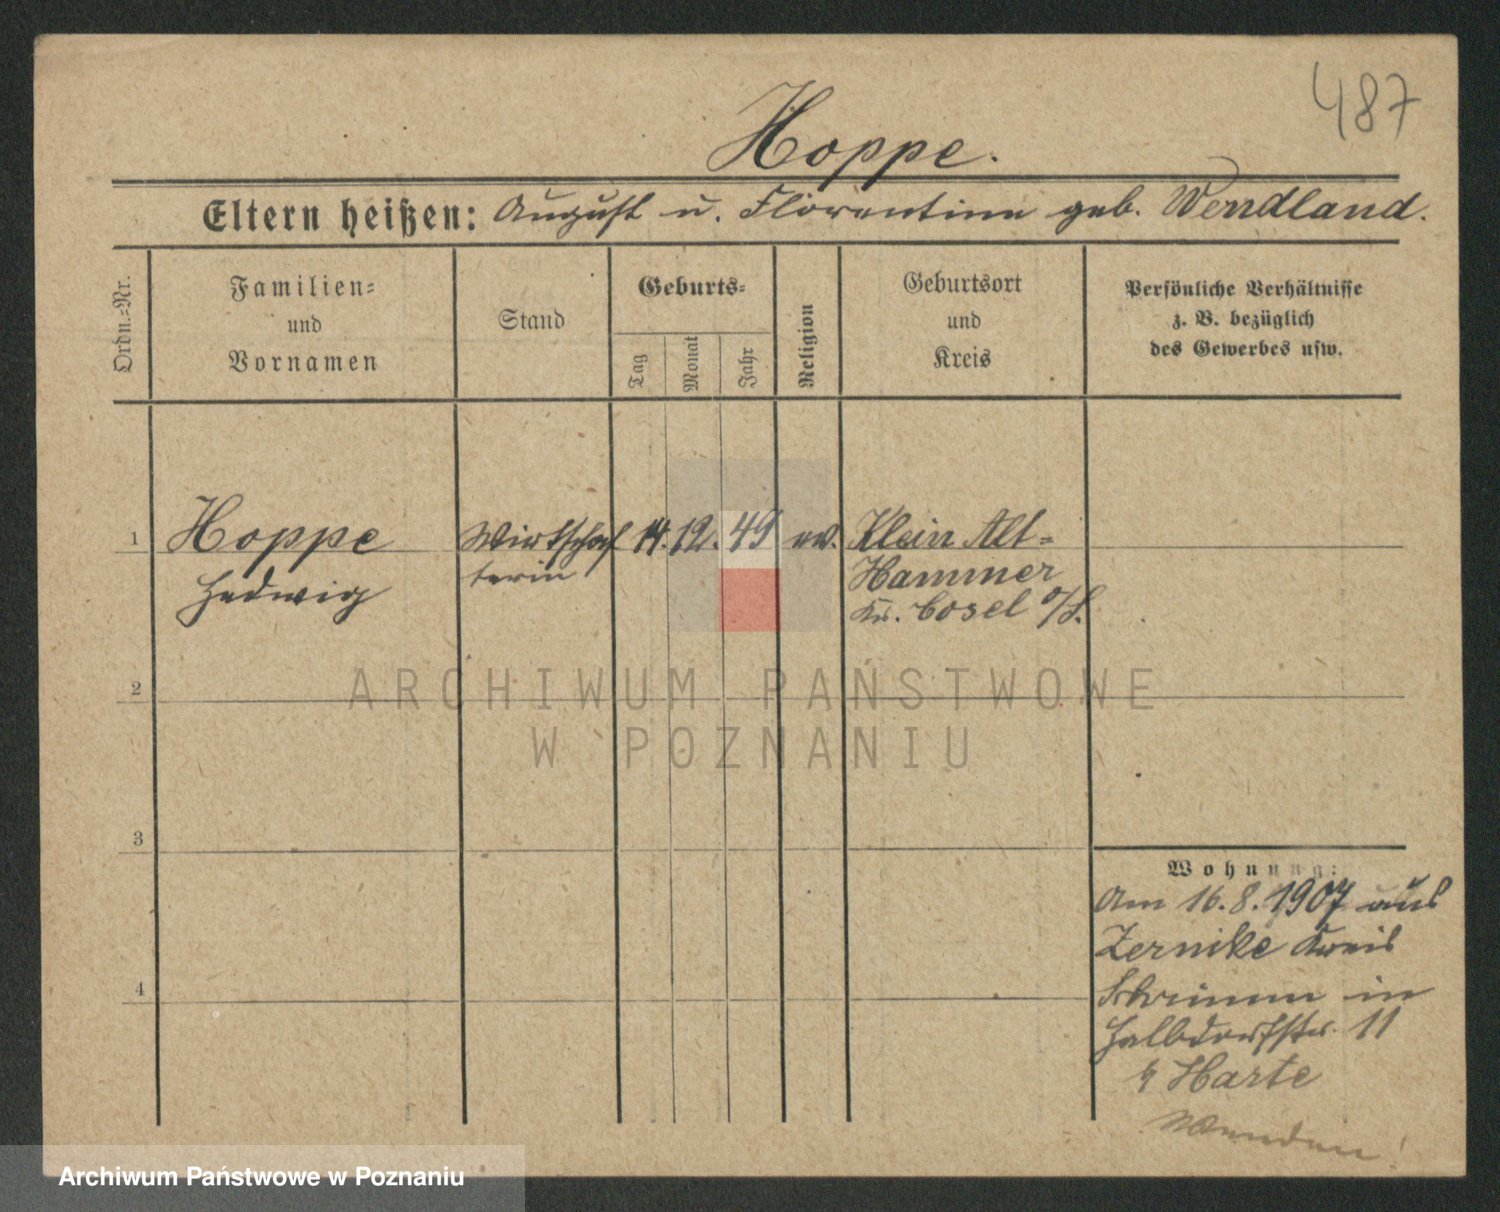 487
Hoppe.
Eltern heißen: August u. Florentine geb. Wendland.
Ordn.=Nr.
Familien=
und
Vornamen
Stand
Geburts=
Tag
Monat
Jahr
Religion
Geburtsort
und
Kreis
Persönliche Verhältnisse
z. B. bezüglich
des Gewerbes usw.
1 Hoppe Wirtschaf 14. 12. 49 ev. Klein Alt=
Hedwig terin Hammer
Kr. Cosel O/S.
ARCHIWUM PAŃSTWOWE
W POZNANIU
2
3
4
Wohnung:
Am 16.8.1907 aus
Zernike Kreis
Schrimm in
Halbdorfstr. 11
Harte
Wenden!
Archiwum Państwowe w Poznaniu